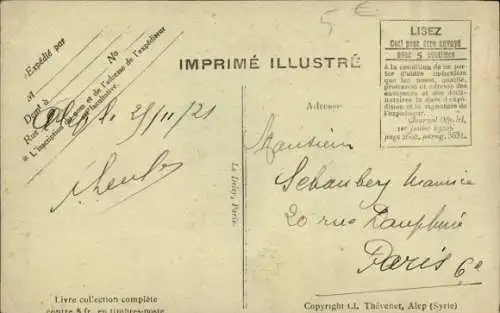 5 €
Expédié par
N°
et
Dont à
Rue
* L'inscription des nom et de l'adresse de l'expéditeur
est facultative.
IMPRIMÉ ILLUSTRÉ
LISEZ
Ceci peut être envoyé
avec 5 centimes
à la condition de ne porter d'autre indication
que les noms, qualité,
profession et adresse des
envoyeurs et des destinataires
la date d'expédition
et la signature de
l'expéditeur.
Journal Officiel,
page
Alep le 25/11/21
Adresse:
Monsieur
Schaubey Maurice
20 rue Dauphine
Paris 6e
Le Deley, Paris.
Livre collection complète
contre 8 fr. en timbres-poste
Copyright Cl. Thévenet, Alep (Syrie)